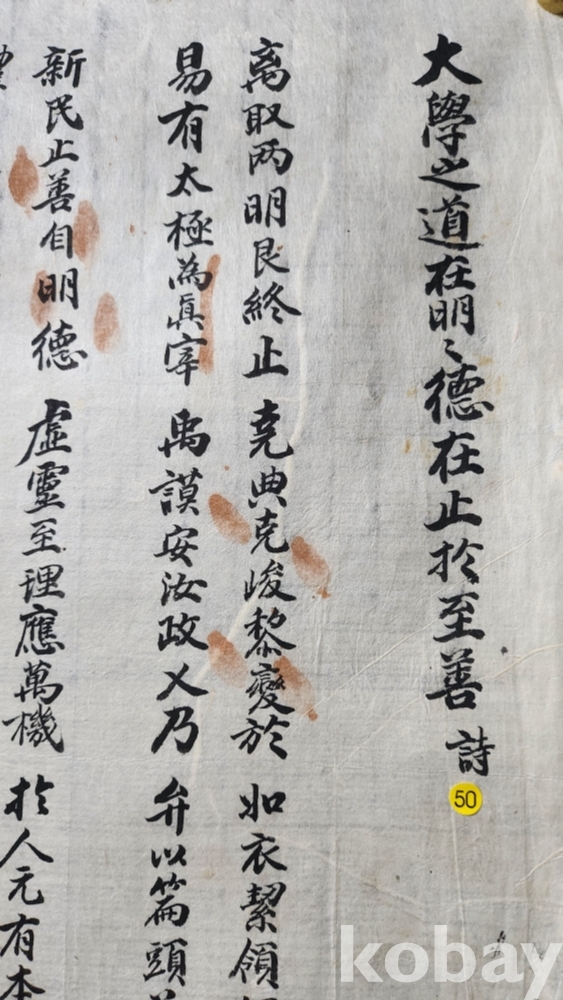 大學之道在明〻德在止扵至善 詩
离取两明艮終止 克典克峻黎變於 如衣絜領
易有太極為眞宰 禹謨安汝政乂乃 弁以篇頭
新民止善自明德 虛靈至理應萬機 扵人元有本
50
kobay